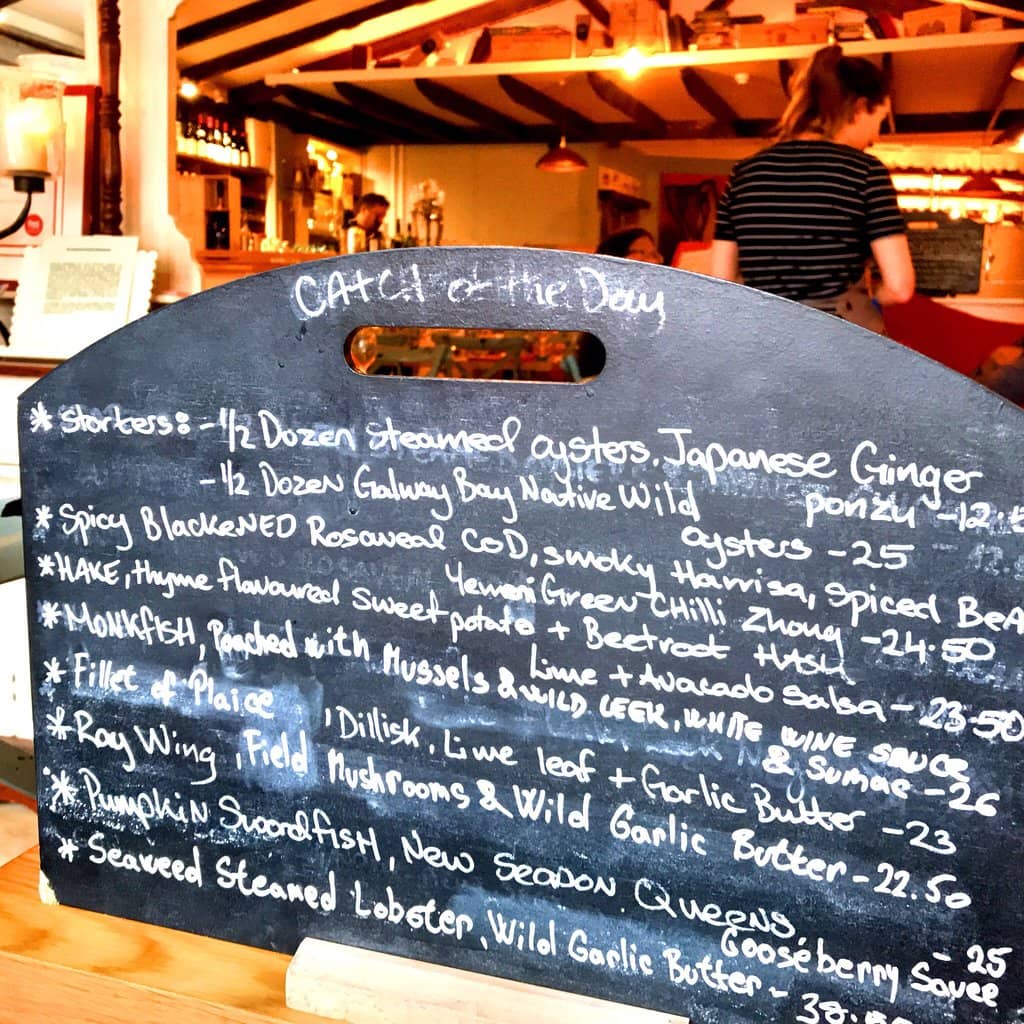 CAtCH of the Day
* Starters: - 1/2 Dozen steamed oysters, Japanese Ginger
ponzu - 12.5
- 1/2 Dozen Galway Bay Native Wild
oysters - 25
* Spicy BlackeNED Rosaveal COD, smoky Harrisa, spiced BeA
Yemeni Green CHilli Zhoug - 24.50
* HAKE, thyme flavoured sweet potato + Beetroot HASH
Lime + Avacado Salsa - 23.50
* MONKfISH, Poached with Mussels & WILD LEEK, WHITE WINE SAUCE
& Sumac - 26
* Fillet of Plaice, Dillisk, Lime leaf + Garlic Butter - 23
* Ray Wing, Field Mushrooms & Wild Garlic Butter - 22.50
* Pumpkin SwordfISH, New Season Queens,
Gooseberry Sauce - 25
* Seaweed Steamed Lobster, Wild Garlic Butter - 38.